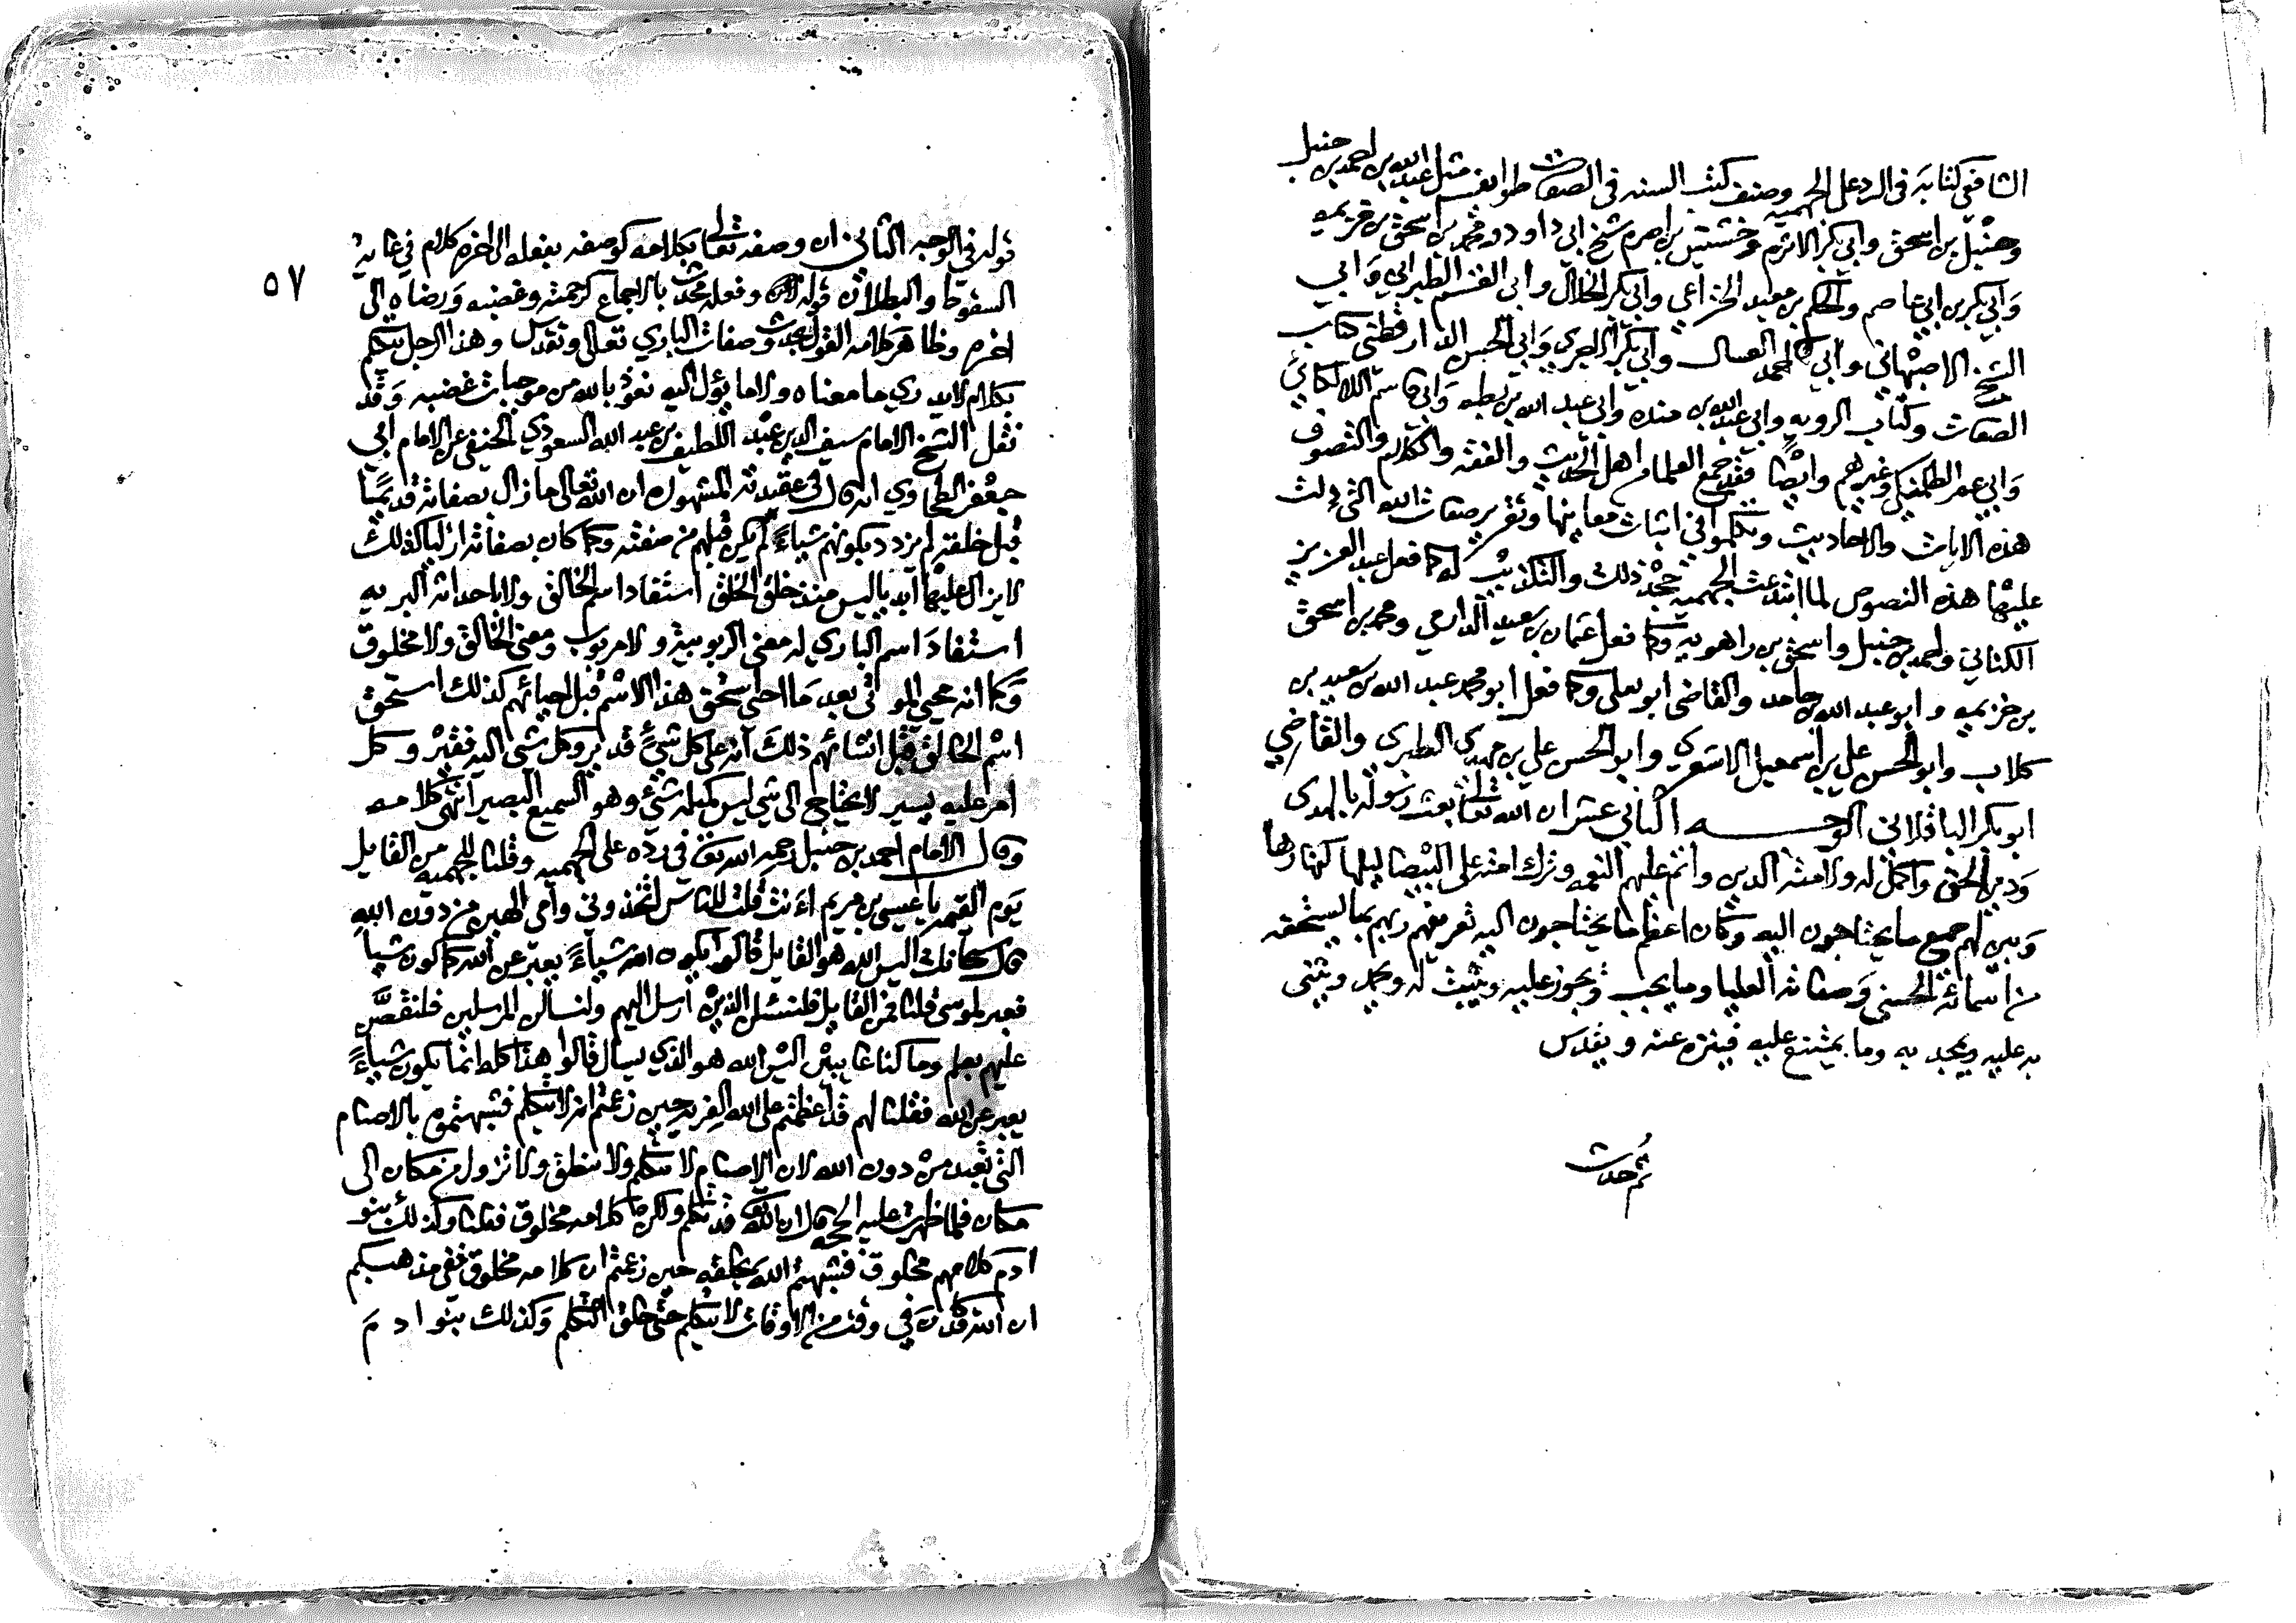 الشافعي كتابه في الرد على الجهمية وصنف كتب السنه في الصفات طوايف مثل عبد الله بن احمد بن حنبل
وحنبل بن اسحق وابي بكر الاثرم وخشيش بن اصرم شيخ ابي داود ومحمد بن اسحق بن خزيمه
وابي بكر بن ابي عاصم والحكم بن معبد الخزاعي وابي بكر الخلال وابي القسم الطبراني وابي
الشيخ الاصبهاني وابي احمد العسال وابي بكر الاجري وابي الحسن الدارقطني كتاب
الصفات وكتاب الرويه وابي عبد الله بن منده وابي عبد الله بن بطه وابي قاسم اللالكائي
وابي عمر الطلمنكي وغيرهم وايضا فقد جمع العلماء من اهل الحديث والفقه والكلام والتصوف
هذه الايات والاحاديث وتكلموا في اثبات معانيها وتقرير صفات الله التي دلت
عليها هذه النصوص لما ابتدعت الجهمية جحد ذلك والتكذيب له كما فعل عبد العزيز
الكناني واحمد بن حنبل واسحق بن راهويه وكما فعل عثمان بن سعيد الدارمي ومحمد بن اسحق
بن خزيمه وابو عبد الله بن حامد والقاضي ابو يعلى وكما فعل ابو محمد عبد الله بن سعيد بن
كلاب وابو الحسن علي بن اسمعيل الاشعري وابو الحسن علي بن مهدي الطبري والقاضي
ابو بكر الباقلاني الوجه الثاني عشر ان الله تعالى بعث رسوله بالهدى
ودين الحق واكمل له ولامته الدين واتم عليهم النعمه وترك امته على البيضا ليلها كنهارها
وبين لهم جميع ما يحتاجون اليه وكان اعظم ما يحتاجون اليه تعريفهم ربهم بما يستحقه
من اسمائه الحسنى وصفاته العليا وما يجب ويجوز عليه ويثبت له ويحمد ويثنى
به عليه ويمجد به وما يمتنع عليه فينزه عنه ويقدس
ثم حدث
٥٧
قوله في الوجه الثاني ان وصفه تعالى بكلامه كوصفه بفعله الى اخره كلام في غاية
السقوط والبطلان قوله وفعله محدث بالاجماع كرحمته وغضبه ورضاه الى
اخره وظاهر كلامه القول بحدوث صفات الباري تعالى وتقدس وهذا الرجل يتكلم
بكلام لا يدري ما معناه ولا ما يؤل اليه نعوذ بالله من موجبات غضبه وقد
نقل الشيخ الامام سيف الدين عبد اللطيف بن عبد الله السعودي الحنفي عن الامام ابي
جعفر الطحاوي انه قال في عقيدته المشهوره ان الله تعالى ما زال بصفاته قديما
قبل خلقه لم يزدد بكونهم شياء لم يكن قبلهم من صفته وكما كان بصفاته ازليا كذلك
لا يزال عليها ابديا ليس منذ خلق الخلق استفاد اسم الخالق ولا باحداثه البريه
استفاد اسم الباري له معنى الربوبية ولا مربوب ومعنى الخالق ولا مخلوق
وكما انه محيي الموتى بعد ما احيا استحق هذا الاسم قبل احيائهم كذلك استحق
اسم الخالق قبل انشائهم ذلك انه على كل شيء قدير وكل شي اليه فقير وكل
امر عليه يسير لا يحتاج الى شي ليس كمثله شيء وهو السميع البصير انتهى كلامه
وقال الامام احمد بن حنبل رحمه الله تعالى في رده على الجهميه وقلنا للجهمية من القايل
يوم القيمه يا عيسى بن مريم اءنت قلت للناس اتخذوني وامي الهين من دون الله
قال سبحانك اليس الله هو القايل قالوا يكون الله شياء يعبر عن الله كما كون شيا
فعبر لموسى قلنا فمن القايل فلنسئلن الذين ارسل اليهم ولنسألن المرسلين فلنقصن
عليهم بعلم وما كنا غايبين اليس الله هو الذي يسال قالوا هذا كله انما يكون شياء
يعبر عن الله فقلنا لهم قد اعظمتم على الله الفرية حين زعمتم انه لا يتكلم فشبهتموه بالاصنام
التي تعبد من دون الله لان الاصنام لا تتكلم ولا تنطق ولا تزول من مكان الى
مكان فلما ظهرت عليه الحجه قال ان الله تعالى قد يتكلم ولكن كلامه مخلوق فقلنا وكذلك بنو
ادم كلامهم مخلوق فشبهتم الله بخلقه حين زعمتم ان كلامه مخلوق ففي مذهبكم
ان الله قد كان في وقت من الاوقات لا يتكلم حتى خلق التكلم وكذلك بنو ادم